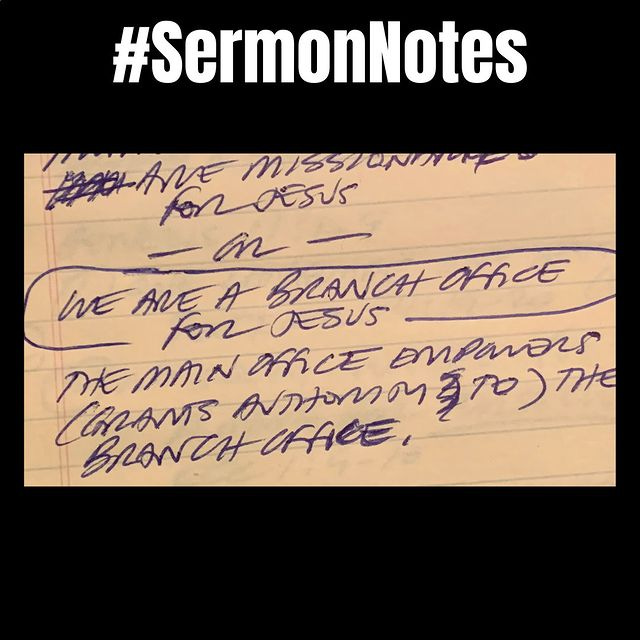 #SermonNotes
ARE MISSIONARIES
FOR JESUS
— OR —
WE ARE A BRANCH OFFICE
FOR JESUS
THE MAIN OFFICE EMPOWERS
(GRANTS AUTHORITY TO) THE
BRANCH OFFICE.